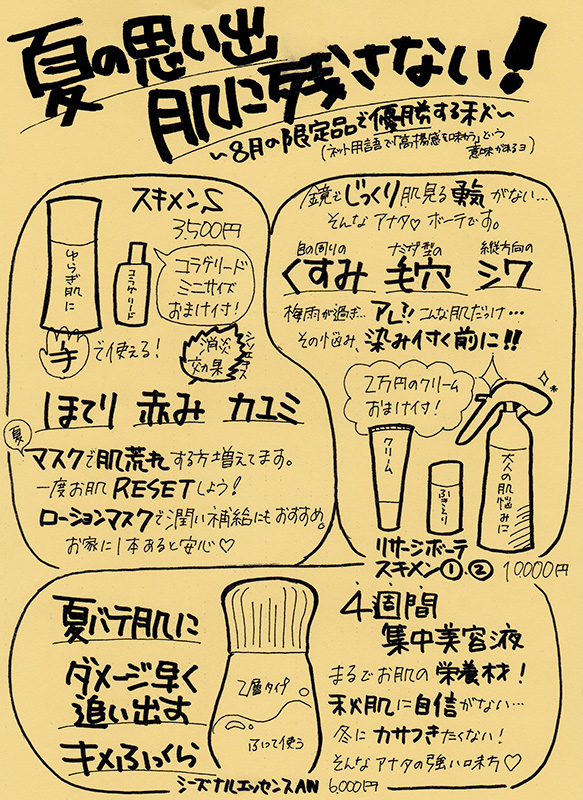 夏の思い出
肌に残さない!
~8月の限定品で優勝する私~
(ネット用語で「高揚感を味わう」という
意味があるヨ)
スキメンS
3,500円
ゆらぎ肌に
コラゲリード
コラゲリード
ミニサイズ
おまけ付!
手で使える!
消炎
効果
ほてり 赤み カユミ
夏
マスクで肌荒れする方増えてます。
一度お肌RESETしよう!
ローションマスクで潤い補給にもおすすめ。
お家に1本あると安心♡
鏡でじっくり肌見る勇気がない…
そんなアナタ♡ボーテです。
目の周りの ナミダ型の 縦方向の
くすみ 毛穴 シワ
梅雨が過ぎ…アレ!?こんな肌だっけ…
その悩み、染み付く前に!!
2万円のクリーム
おまけ付!
クリーム
ふきとり
大人の肌悩みに
リサージボーテ
スキメン①.② 10,000円
夏バテ肌に
ダメージ早く
追い出す
キメふっくら
2層タイプ
ふって使う
シーズナルエッセンスAN 6,000円
4週間
集中美容液
まるでお肌の栄養材!
秋肌に自信がない…
冬にカサつきたくない!
そんなアナタの強い味方♡